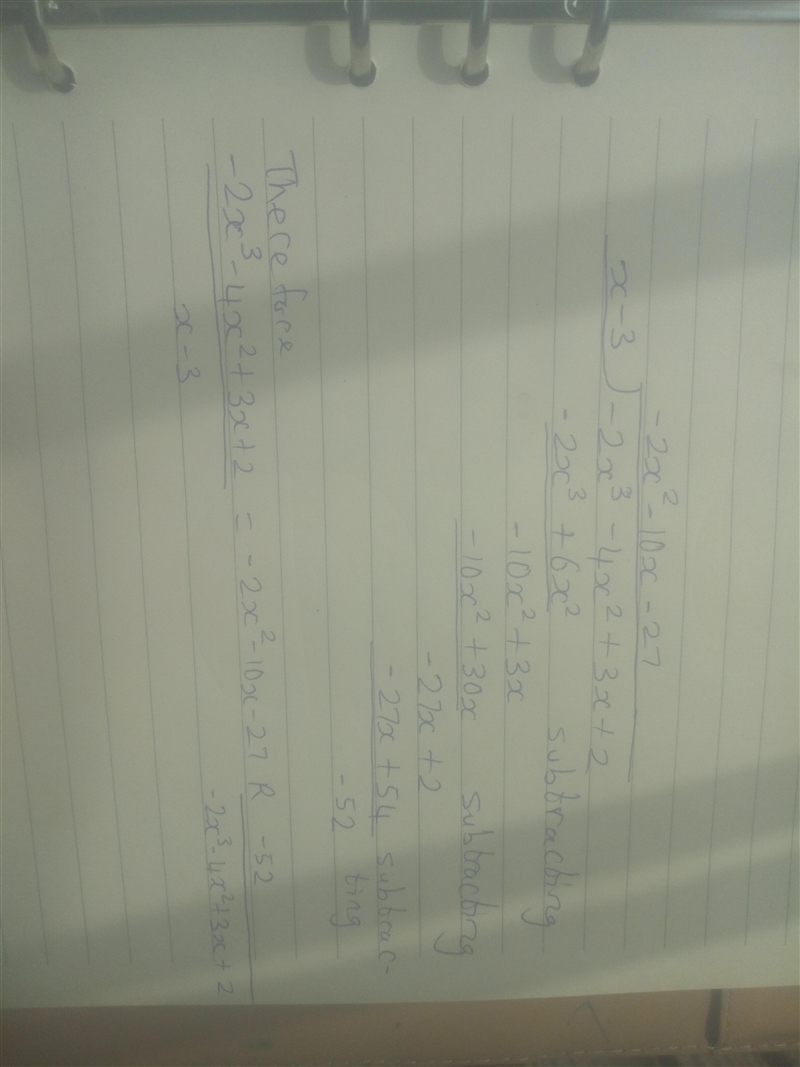 -2x² - 10x - 27
x - 3 ) -2x³ - 4x² + 3x + 2
-2x³ + 6x² subtracting
-10x² + 3x
-10x² + 30x subtracting
-27x + 2
-27x + 54 subtrac-
-52 ting
Therefore
-2x³ - 4x² + 3x + 2 = -2x² - 10x - 27 R -52
x - 3 -2x³ - 4x² + 3x + 2